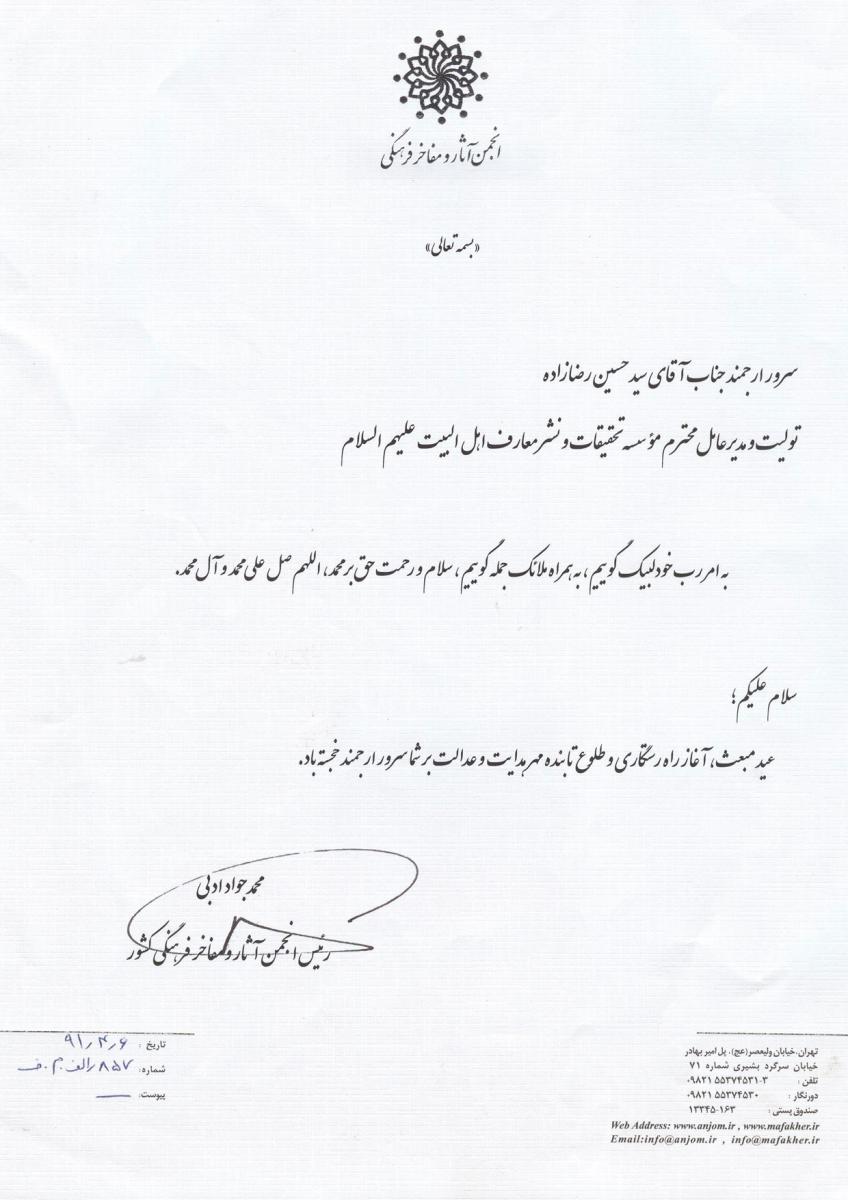 انجمن آثار و مفاخر فرهنگی
«بسمه تعالی»
سرور ارجمند جناب آقای سید حسین رضازاده
تولیت و مدیرعامل محترم مؤسسه تحقیقات و نشر معارف اهل البیت علیهم السلام
به امر رب خود لبیک گوییم، به همراه ملائک جمله گوییم، سلام و رحمت حق بر محمد، اللهم صل علی محمد و آل محمد.
سلام علیکم؛
عید مبعث، آغاز راه رستگاری و طلوع تابنده مهر هدایت و عدالت بر شما سرور ارجمند خجسته باد.
محمد جواد ادبی
رئیس انجمن آثار و مفاخر فرهنگی کشور
تاریخ : ۹۱/۴/۶
شماره: ۸۵۷/الف.م.ف
پیوست:
تهران، خیابان ولیعصر(عج)، پل امیر بهادر
خیابان سرگرد بشیری شماره ۷۱
تلفن : ۰۹۸۲۱ ۵۵۳۷۴۵۳۱-۳
دورنگار : ۰۹۸۲۱ ۵۵۳۷۴۵۳۰
صندوق پستی : ۱۳۳۴۵-۱۶۳
Web Address: www.anjom.ir , www.mafakher.ir
Email:info@anjom.ir , info@mafakher.ir